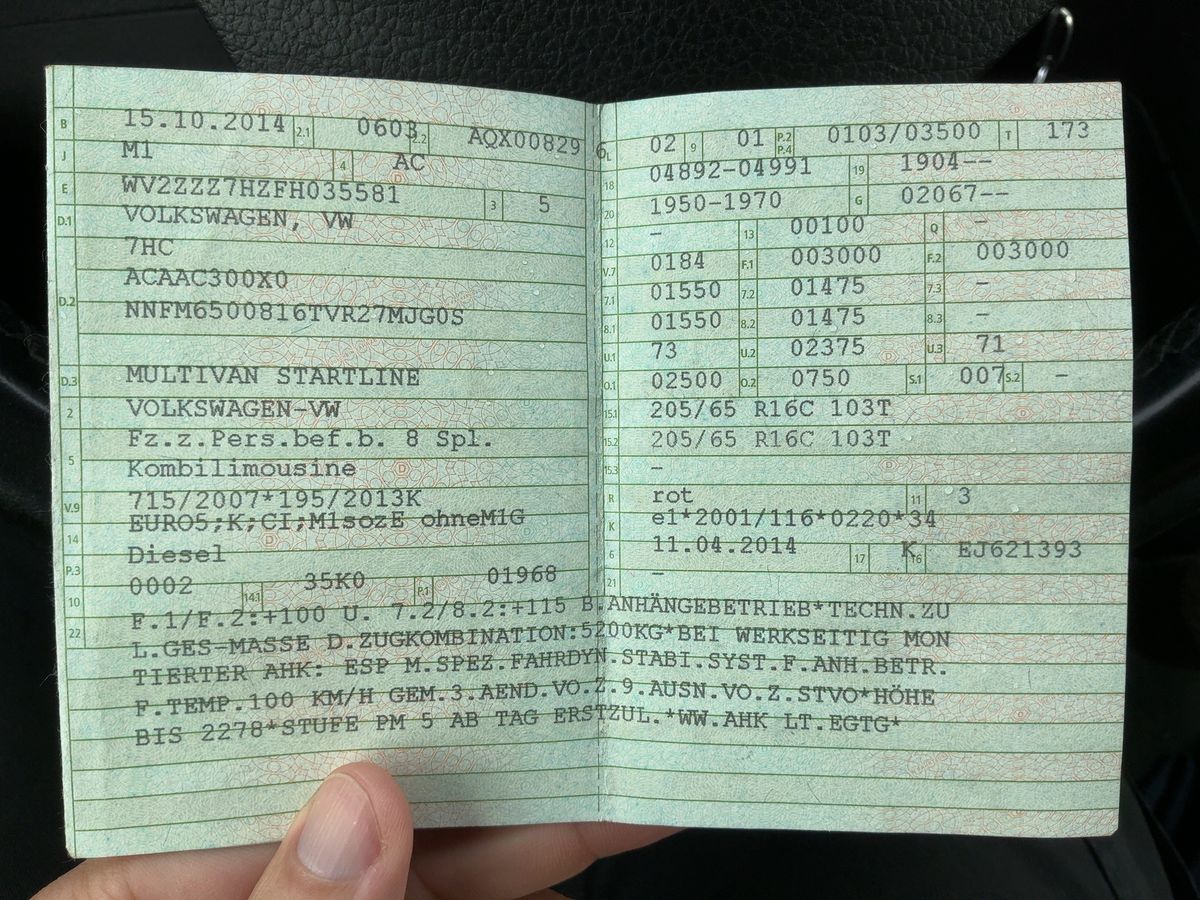 B 15.10.2014 2.1 0603 2.2 AQX00829 6
J M1 4 AC
E WV2ZZZ7HZFH035581 3 5
D.1 VOLKSWAGEN, VW
7HC
D.2 ACAAC300X0
NNFM6500816TVR27MJG0S
D.3 MULTIVAN STARTLINE
2 VOLKSWAGEN-VW
5 Fz.z.Pers.bef.b. 8 Spl.
Kombilimousine
V.9 715/2007*195/2013K
14 EURO5;K;CI;M1sozE ohneM1G
P.3 Diesel
10 0002 14.1 35K0 P.1 01968
L 02 9 01 P.2 P.4 0103/03500 T 173
18 04892-04991 19 1904--
20 1950-1970 G 02067--
12 - 13 00100 Q -
V.7 0184 F.1 003000 F.2 003000
7.1 01550 7.2 01475 7.3 -
8.1 01550 8.2 01475 8.3 -
U.1 73 U.2 02375 U.3 71
O.1 02500 O.2 0750 S.1 007 S.2 -
15.1 205/65 R16C 103T
15.2 205/65 R16C 103T
15.3 -
R rot 11 3
K e1*2001/116*0220*34
6 11.04.2014 17 K 16 EJ621393
21 -
22 F.1/F.2:+100 U. 7.2/8.2:+115 B.ANHÄNGEBETRIEB*TECHN.ZU
L.GES-MASSE D.ZUGKOMBINATION:5200KG*BEI WERKSEITIG MON
TIERTER AHK: ESP M.SPEZ.FAHRDYN.STABI.SYST.F.ANH.BETR.
F.TEMP.100 KM/H GEM.3.AEND.VO.Z.9.AUSN.VO.Z.STVO*HÖHE
BIS 2278*STUFE PM 5 AB TAG ERSTZUL.*WW.AHK LT.EGTG*